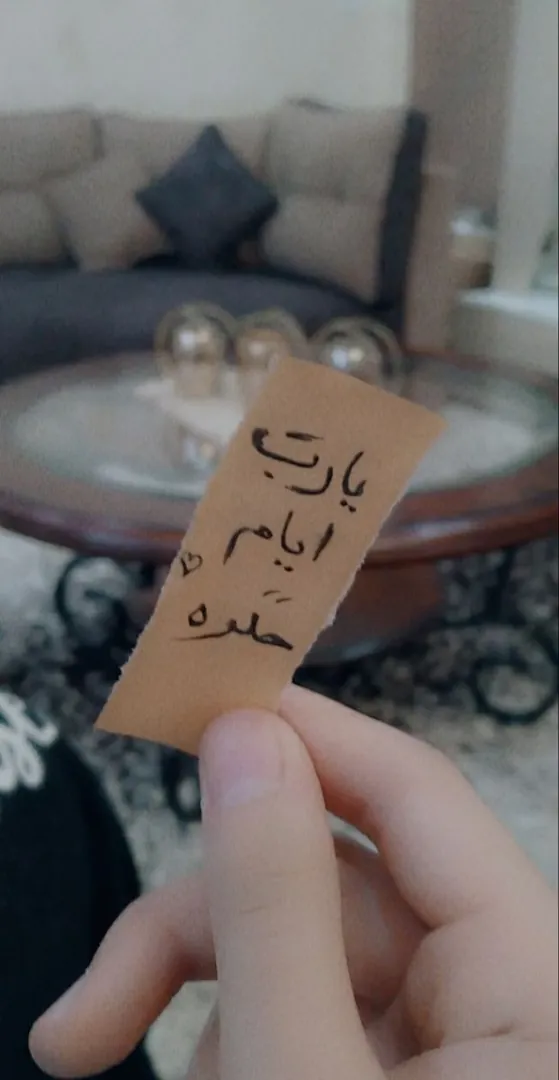 يارب
ايام
حلوه ♡